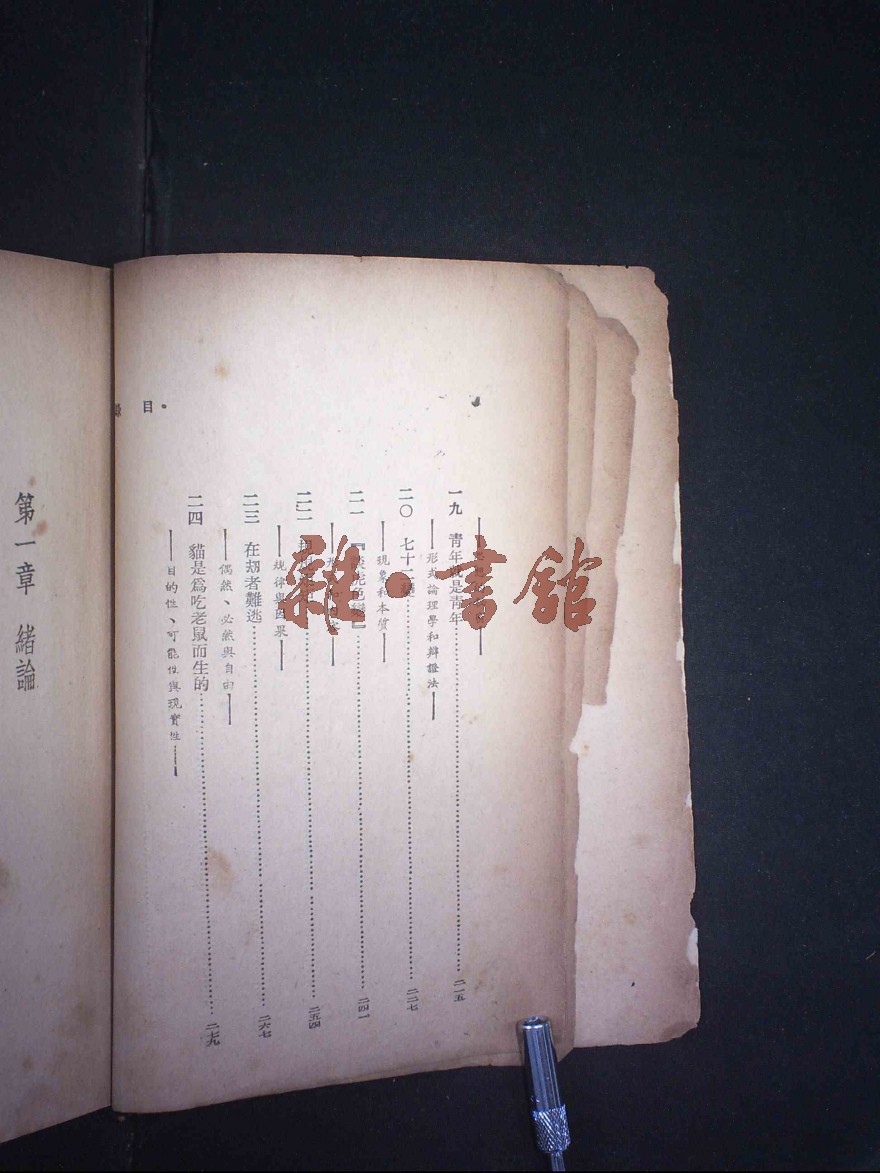 目錄
一九 青年就是青年 二一五
——形式論理學和辯證法——
二〇 七十二變 二二七
——現象和本質——
二一 『談虎色變』 二四一
二二 二五四
——規律與因果——
二三 在劫者難逃 二六七
——偶然、必然與自由——
二四 貓是為吃老鼠而生的 二七九
——目的性、可能性與現實性——
第一章 緒論
雜·書館